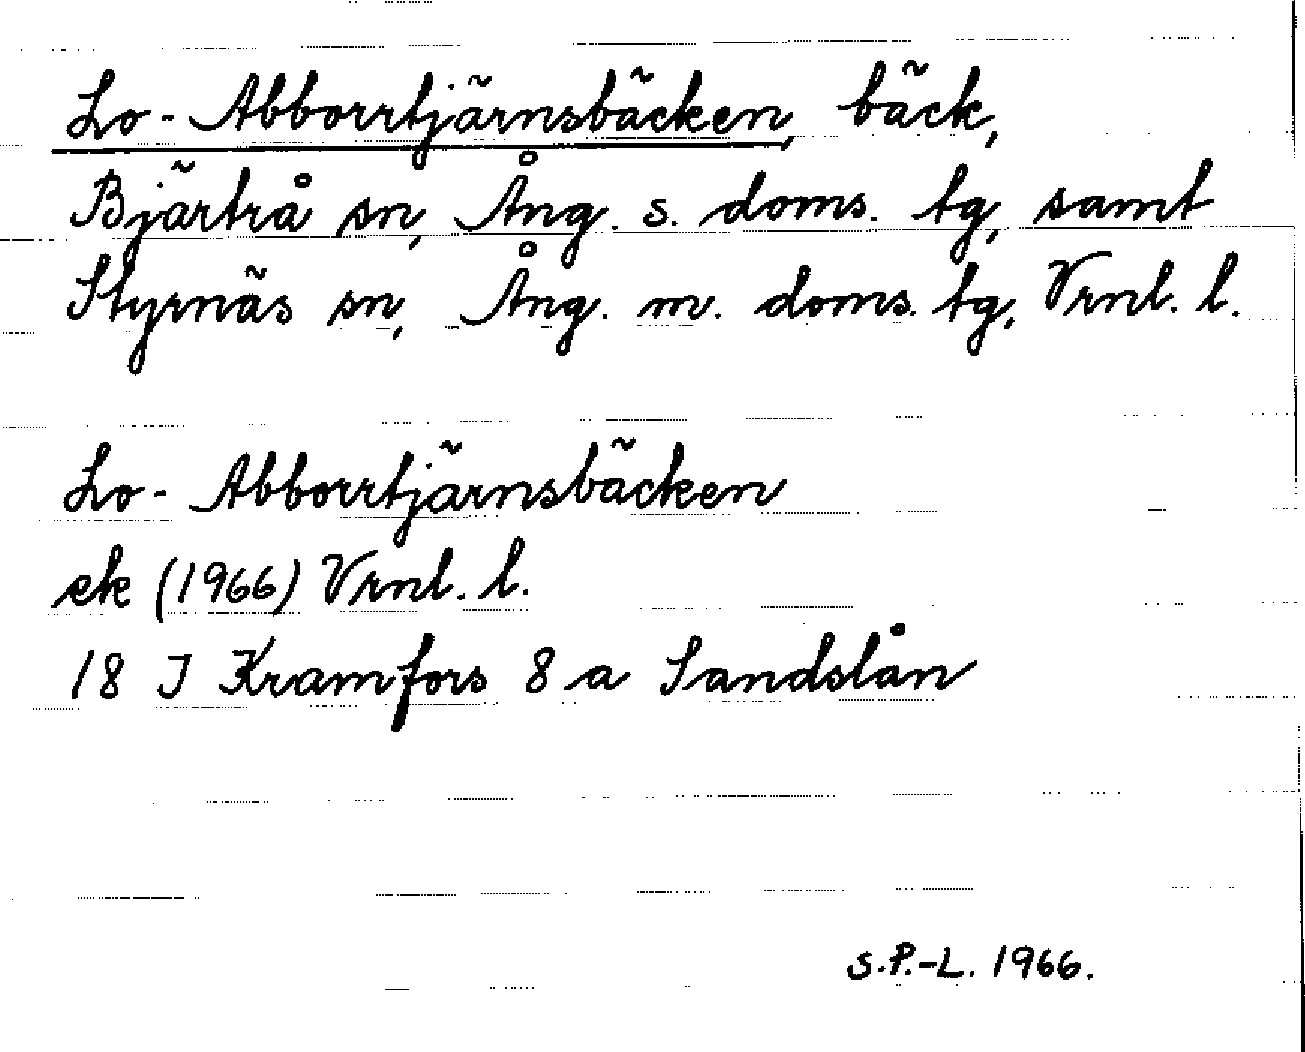 Lo-Abborrtjärnsbäcken, bäck,
Bjärtrå sn, Ång. s. doms. tg, samt
Styrnäs sn, Ång. m. doms. tg, Vrnl. l.
Lo-Abborrtjärnsbäcken
ek (1966) Vrnl. l.
18 J Kramfors 8 a Sandslån
S.P.-L. 1966.